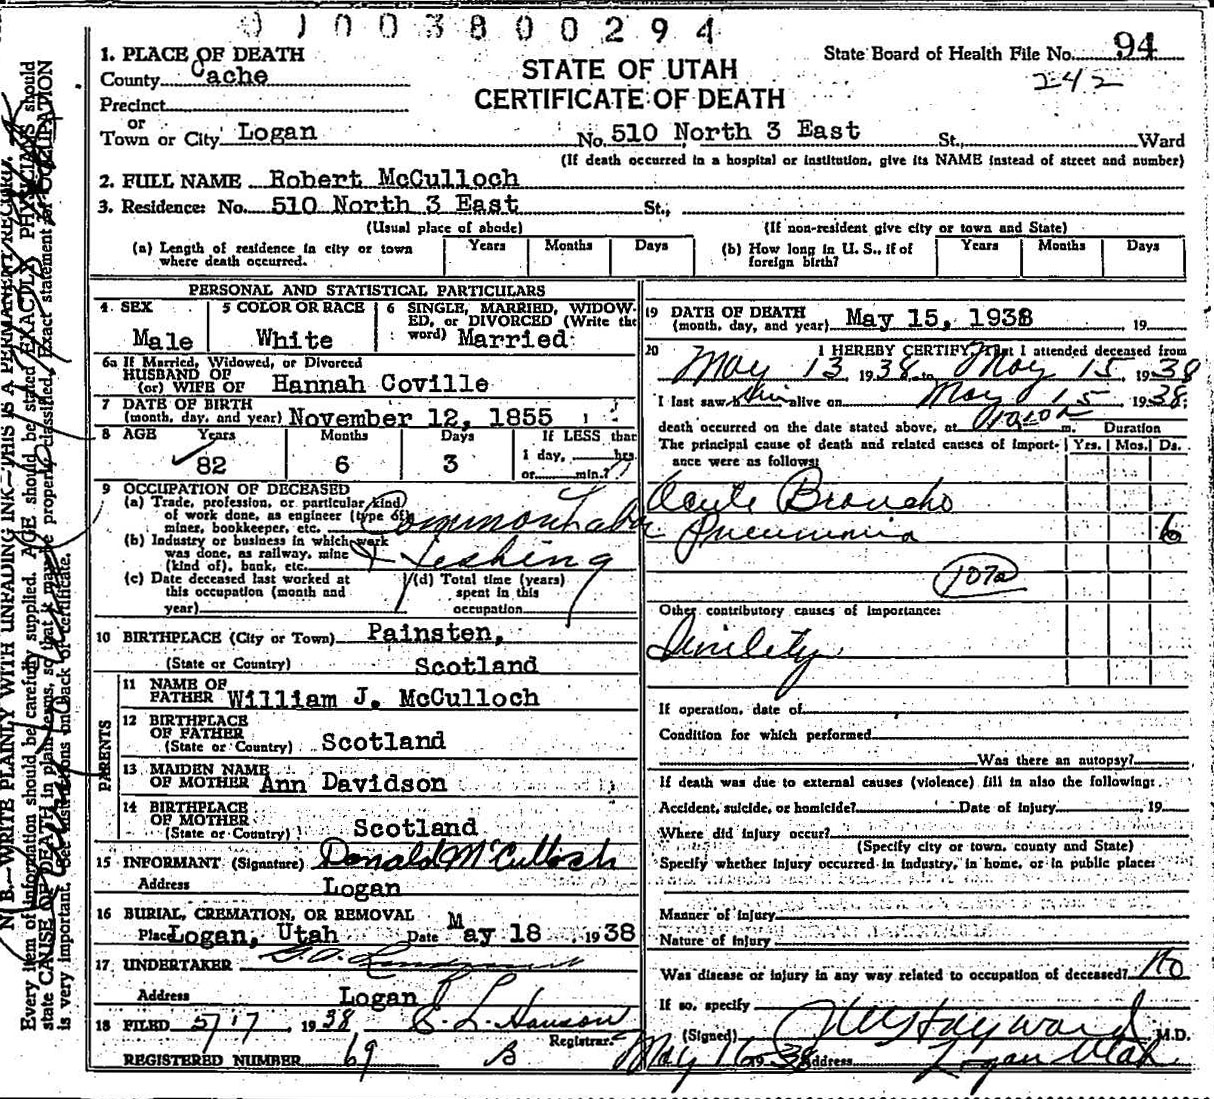 0 1 0 0 3 8 0 0 2 9 4
1. PLACE OF DEATH
County Cache
Precinct
or
Town or City Logan
STATE OF UTAH
CERTIFICATE OF DEATH
State Board of Health File No. 94
242
No. 510 North 3 East St., Ward
(If death occurred in a hospital or institution, give its NAME instead of street and number)
2. FULL NAME Robert McCulloch
3. Residence: No. 510 North 3 East St.,
(Usual place of abode) (If non-resident give city or town and State)
(a) Length of residence in city or town where death occurred. Years Months Days
(b) How long in U. S., if of foreign birth? Years Months Days
PERSONAL AND STATISTICAL PARTICULARS
4. SEX Male
5 COLOR OR RACE White
6 SINGLE, MARRIED, WIDOWED, or DIVORCED (Write the word) Married
6a If Married, Widowed, or Divorced
HUSBAND OF
(or) WIFE OF Hannah Coville
7 DATE OF BIRTH
(month, day, and year) November 12, 1855
8 AGE Years Months Days If LESS than
82 6 3 1 day, hrs.
or min.?
9 OCCUPATION OF DECEASED
(a) Trade, profession, or particular kind
of work done, as engineer (type of
miner, bookkeeper, etc. Common Labor
(b) Industry or business in which work
was done, as railway, mine
(kind of), bank, etc.
(c) Date deceased last worked at
this occupation (month and
year)
(d) Total time (years)
spent in this
occupation
10 BIRTHPLACE (City or Town) Painsten,
(State or Country) Scotland
PARENTS
11 NAME OF
FATHER William J. McCulloch
12 BIRTHPLACE
OF FATHER
(State or Country) Scotland
13 MAIDEN NAME
OF MOTHER Ann Davidson
14 BIRTHPLACE
OF MOTHER
(State or Country) Scotland
15 INFORMANT (Signature) Donald McCulloch
Address Logan
16 BURIAL, CREMATION, OR REMOVAL
Place Logan, Utah Date May 18 1938
17 UNDERTAKER
Address Logan
18 FILED 5/17, 1938 Registrar.
REGISTERED NUMBER 69 B
19 DATE OF DEATH
(month, day, and year) May 15, 1938 19
20 I HEREBY CERTIFY, That I attended deceased from
May 13 1938 to May 15, 1938
I last saw him alive on May 15 1938;
death occurred on the date stated above, at m. Duration
The principal cause of death and related causes of importance were as follows: Yrs. Mos. Ds.
Acute Broncho
Pneumonia 6
107a
Other contributory causes of importance:
If operation, date of
Condition for which performed
Was there an autopsy?
If death was due to external causes (violence) fill in also the following:
Accident, suicide, or homicide? Date of injury 19
Where did injury occur?
(Specify city or town, county and State)
Specify whether injury occurred in industry, in home, or in public place:
Manner of injury
Nature of injury
Was disease or injury in any way related to occupation of deceased? No
If so, specify
(Signed) Hayward M.D.
May 16 1938 Address Logan Utah
N. B.—WRITE PLAINLY WITH UNFADING INK—THIS IS A PERMANENT RECORD.
Every item of information should be carefully supplied. AGE should be stated EXACTLY. PHYSICIANS should
state CAUSE OF DEATH in plain terms, so that it may be properly classified. Exact statement of OCCUPATION
is very important. See instructions on back of certificate.